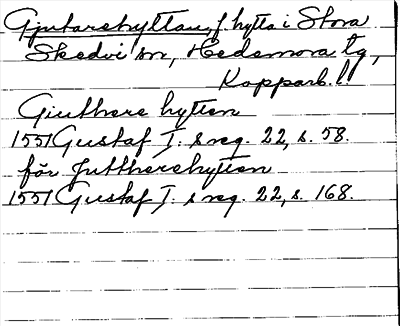 Gjutarehyttan, f. hytta i Stora
Skedvi sn, Hedemora tg,
Kopparb. l.
Giuthere hytten
1551 Gustaf I. s reg. 22, s. 58.
för Jutherehytten
1551 Gustaf I. s reg. 22, s. 168.